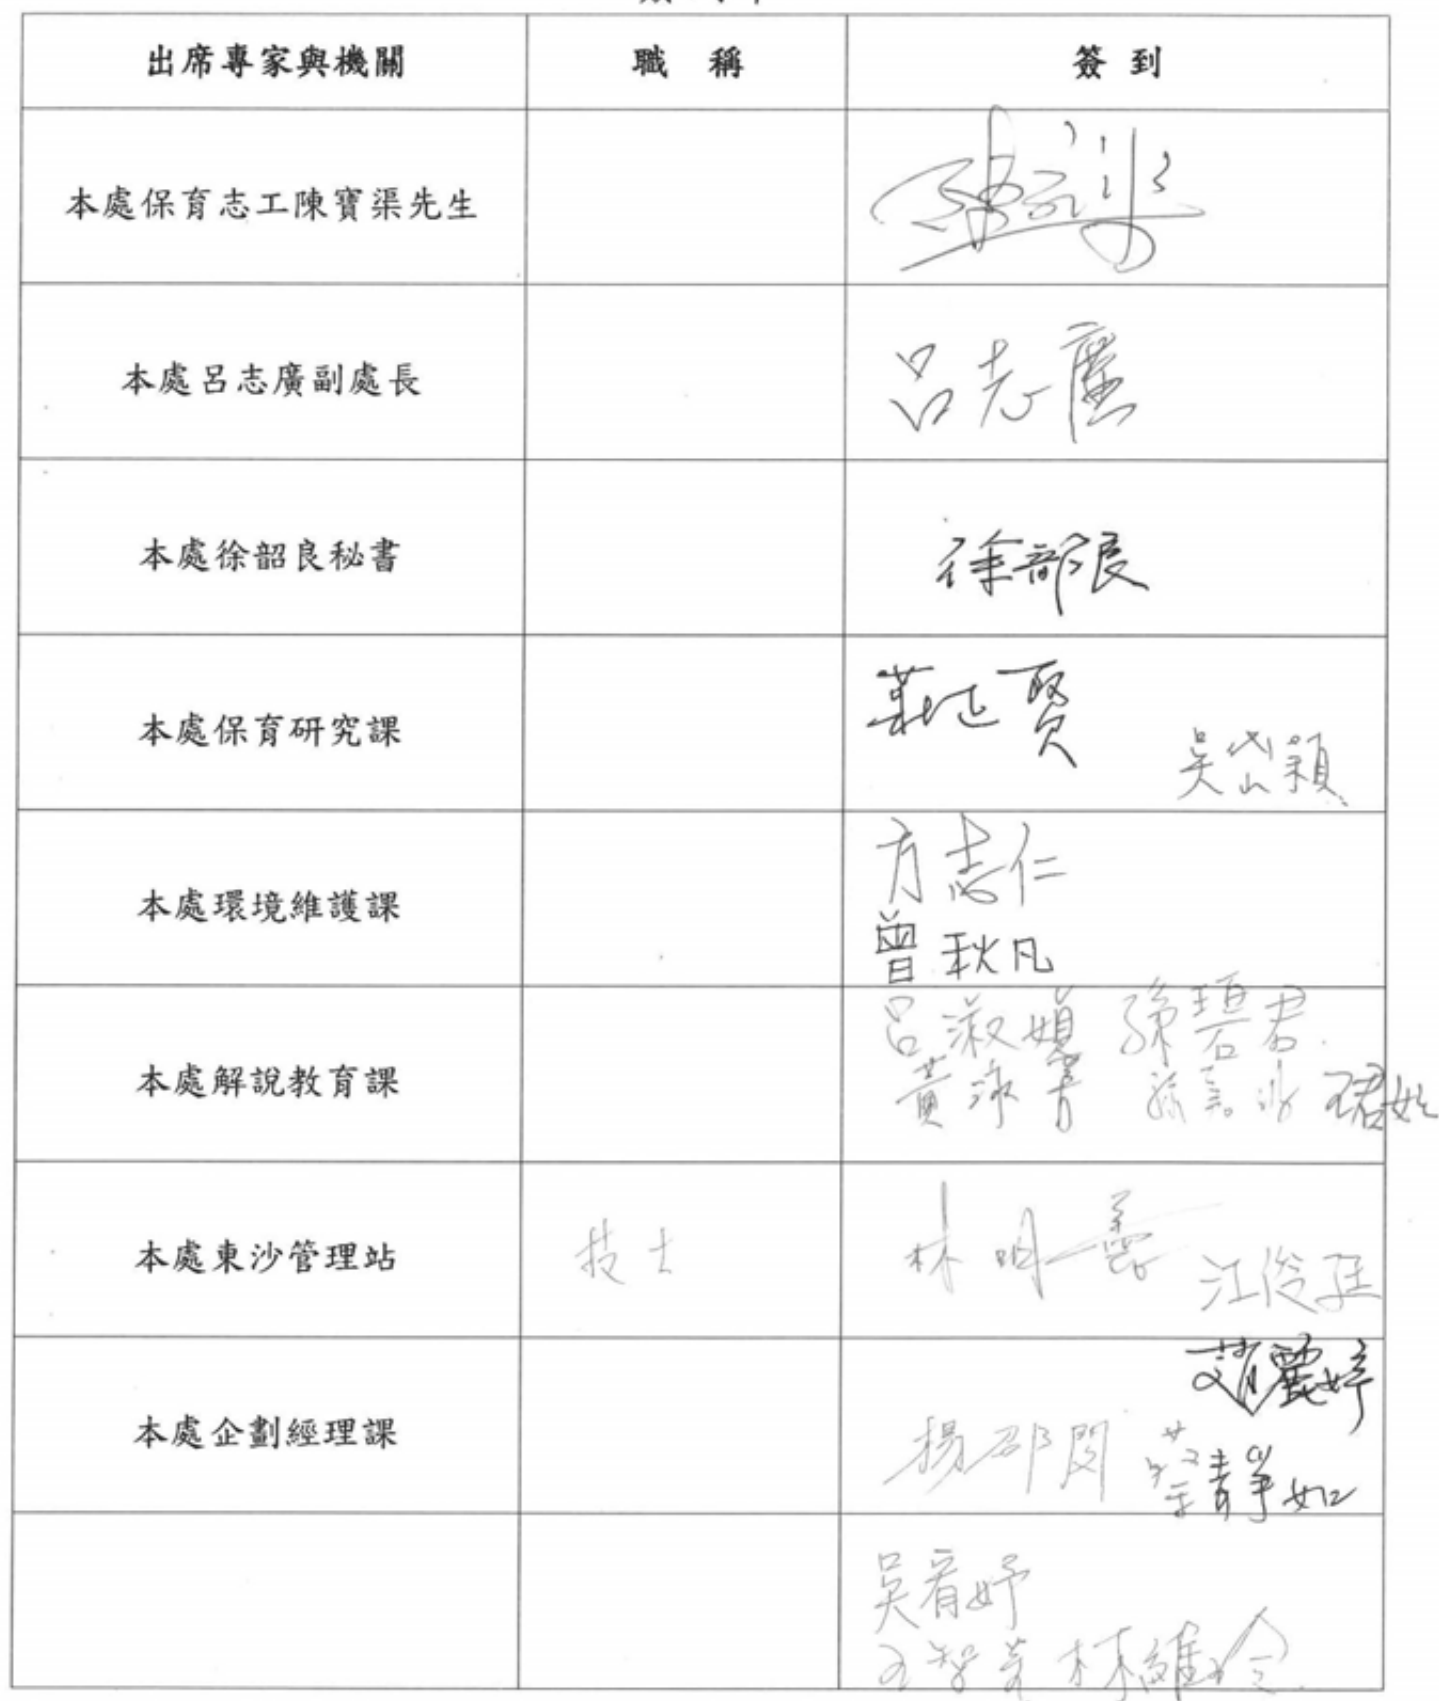 出席專家與機關 職 稱 簽 到
本處保育志工陳寶渠先生
本處呂志廣副處長 呂志廣
本處徐韶良秘書 徐韶良
本處保育研究課 莊 賢
吳岱穎
本處環境維護課 方志仁
曾秋凡
本處解說教育課 呂淑 孫碧君
黃
本處東沙管理站 技士 林明 江俊
本處企劃經理課 趙麗婷
楊邵閔 蔡靜如
吳宥妤
林維玲